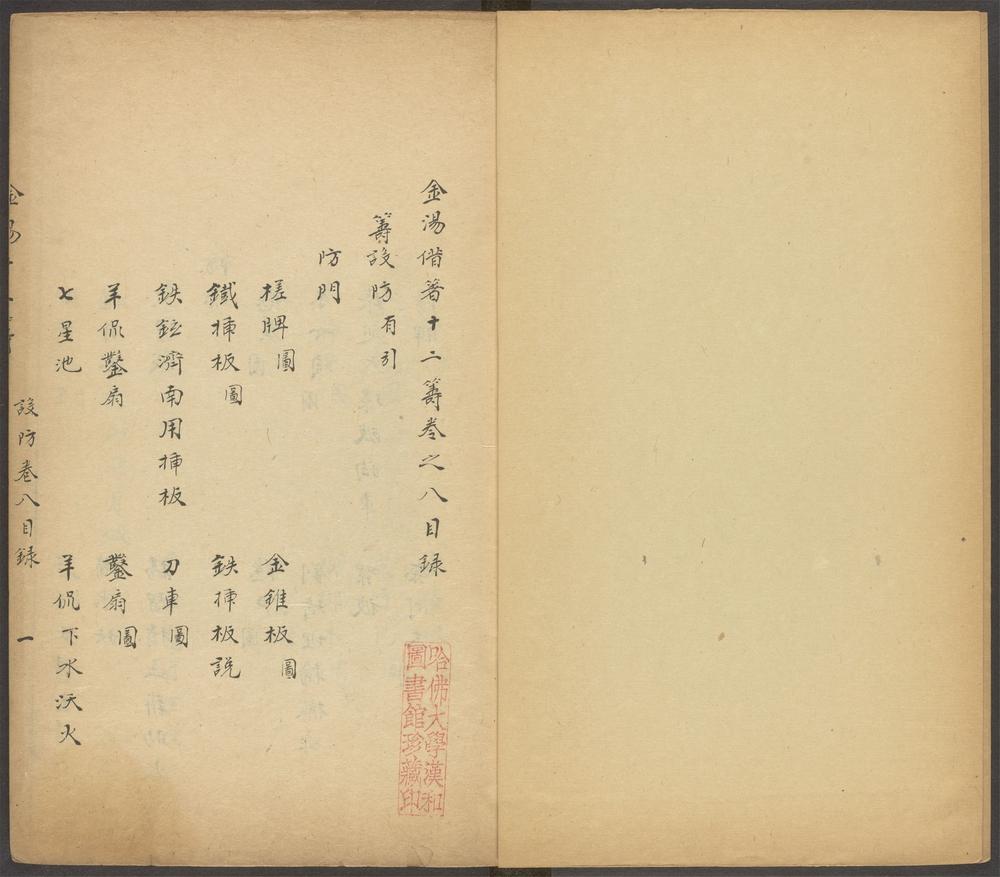 金湯借箸十二籌卷之八目録
籌設防有引
防門
槎牌圖
金錐板圖
鐵揷板圖
鉄揷板説
鉄鋐濟南用揷板
刀車圖
羊侃鑿扇
鑿扇圖
七星池
羊侃下水沃火
設防卷八目録
一
哈佛大學漢和
圖書館珍藏印